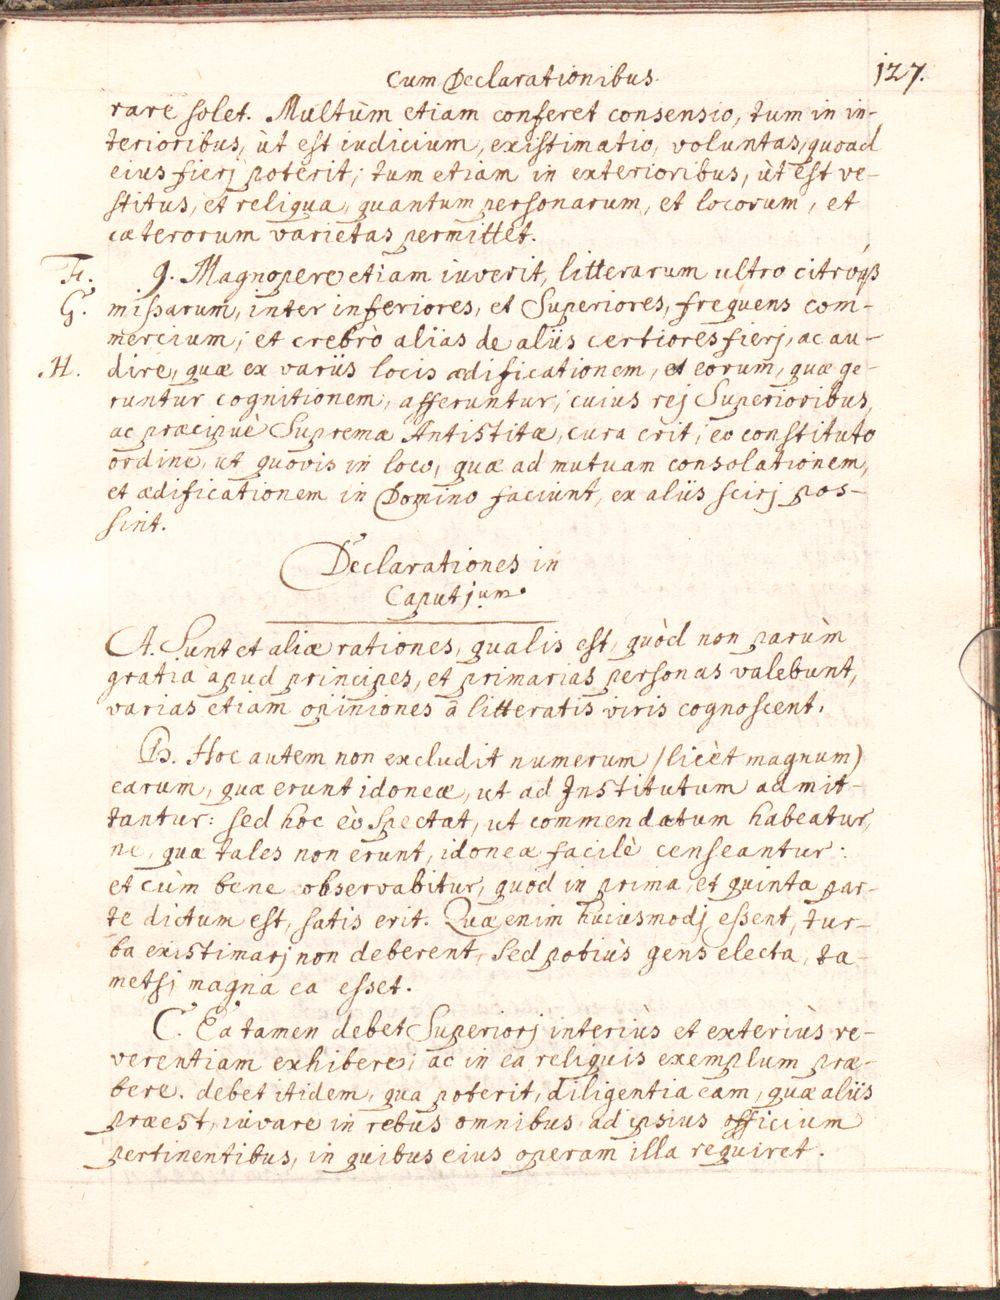 Cum Declarationibus
127.
rare solet. Multùm etiam conferet consensio, tum in in-
terioribus, ùt est iudicium, existimatio, voluntas, quoad
eius fierj poterit; tum etiam in exterioribus, ùt est ve-
stitus, et reliqua, quantum personarum, et locorum, et
cæterorum varietas permittet.
F. 9. Magnopere etiam iuverit, litterarum ultro citroqß
G. missarum, inter inferiores, et Superiores, frequens com-
mercium; et crebrò alias de aliis certiores fierj, ac au-
.H. dire, quæ ex variis locis ædificationem, et eorum, quæ ge-
runtur cognitionem, afferuntur; cuius rej Superioribus,
ac præcipuè Supremæ Antistitæ, cura erit; eo constituto
ordine, ut quovis in loco, quæ ad mutuam consolationem,
et ædificationem in Domino faciunt, ex aliis scirj pos-
sint.
Declarationes in
Caput jum.
A. Sunt et aliæ rationes, qualis est, quòd non parùm
gratia apud principes, et primarias personas valebunt,
varias etiam opiniones â litteratis viris cognoscent.
B. Hoc autem non excludit numerum (licèt magnum)
earum, quæ erunt idoneæ, ut ad Institutum admit-
tantur: sed hoc eò spectat, ut commendatum habeatur,
ne, quæ tales non erunt, idoneæ facilè censeantur:
et cùm bene observabitur, quod in prima, et quinta par-
te dictum est, satis erit. Quæ enim huiusmodj essent, tur-
ba existimarj non deberent, sed potiùs gens electa, ta-
metsi magna ea esset.
C. Ea tamen debet Superiorj interiùs et exteriùs re-
verentiam exhibere; ac in ea reliquis exemplum præ-
bere. debet itidem, qua poterit, diligentia eam, quæ aliis
præest, iuvare in rebus omnibus ad ipsius officium
pertinentibus, in quibus eius operam illa requiret.